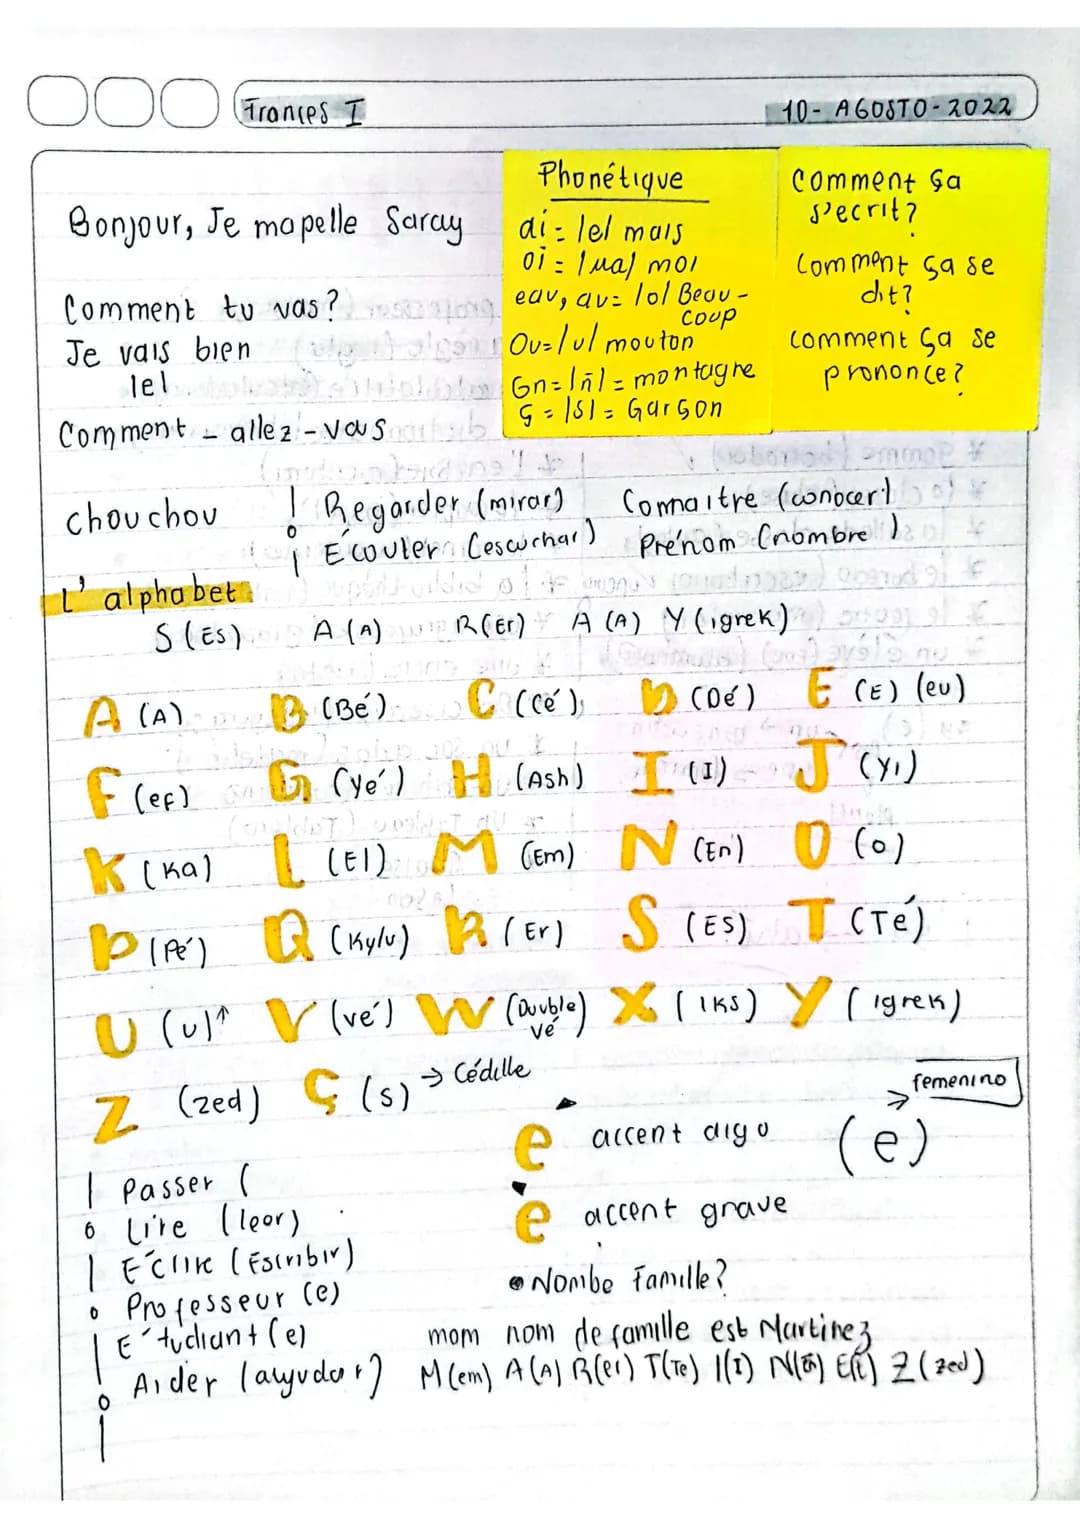 Frances I
10 - AGOSTO - 2022
Bonjour, Je mapelle Saray
Comment tu vas?
Je vais bien
lel
Comment - allez - vous
Phonétique
ai = lel mais
oi = lual moi
eau, au = lol Beau-
coup
Ou = lul mouton
Gn = lñl = montagne
Ç = lSl = Garçon
Comment ça
s'ecrit?
Comment ça se
dit?
Comment ça se
prononce?
chouchou
Regarder (mirar)
Écouter (escuchar)
Connaitre (conocer)
Prénom (nombre)
L'alphabet
S (Es) A (A) R (Er) A (A) Y (igrek)
A (A) B (Bé) C (cé) D (Dé) E (E) (eu)
F (eF) G (Yé) H (Ash) I (I) J (Yi)
K (Ka) L (El) M (Em) N (En) O (o)
P (Pé) Q (Ky/u) R (Er) S (ES) T (Té)
U (u)↑ V (vé) W (Double vé) X (IKS) Y (Igrek)
Z (zed) Ç (s) → Cédille
e accent aigu (e) → femenino
e accent grave
Passer (
Lire (leer)
E'crire (Escribir)
Professeur (e)
E'tudiant (e)
Aider (ayudar)
Nombe Famille?
mom nom de famille est Martinez
M (em) A (A) R (er) T (Te) I (I) N Z (zed)